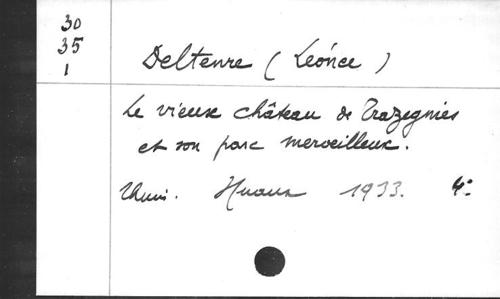 30
35
1
Deltenre (Léonce)
Le vieux château de Trazegnies
et son parc merveilleux.
Thuin. Huaux 1933. 4°